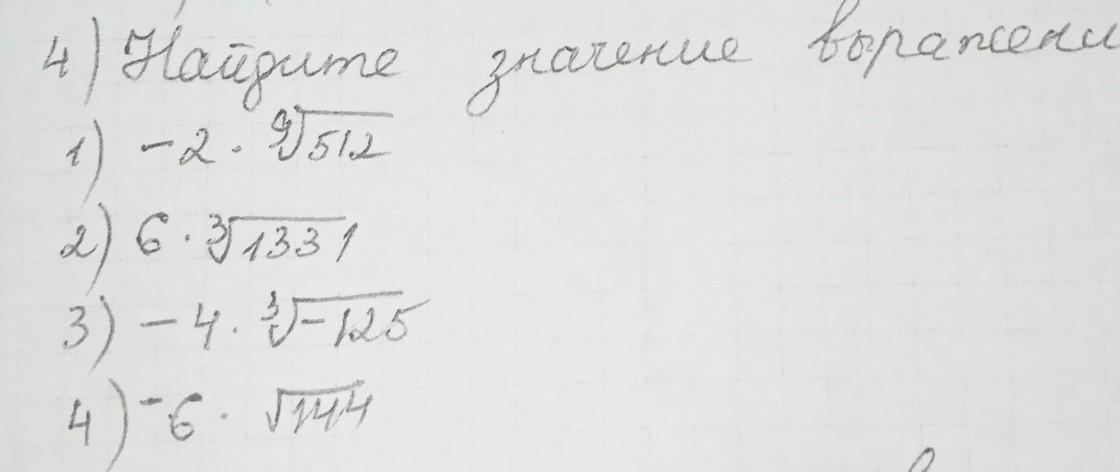 4) Найдите значение выражени
1) -2 · ⁹√512
2) 6 · ³√1331
3) -4 · ³√-125
4) -6 · √144